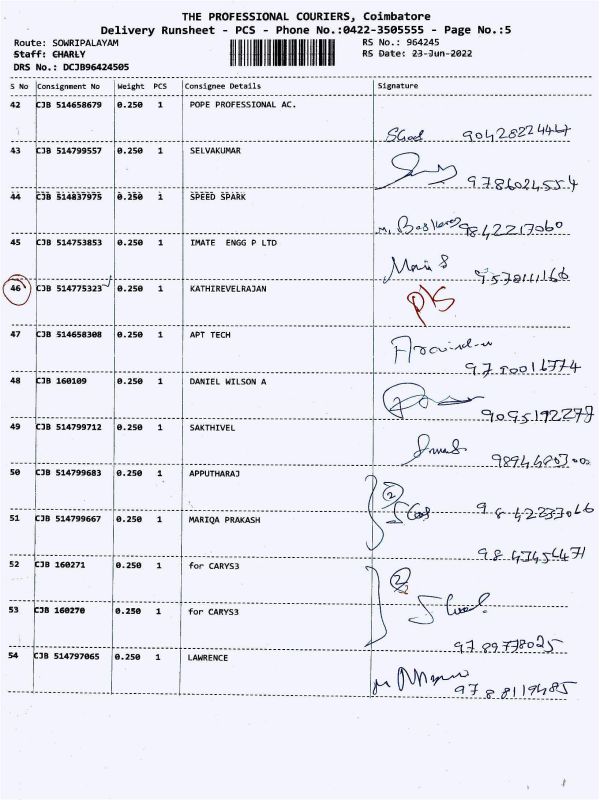 THE PROFESSIONAL COURIERS, Coimbatore
Delivery Runsheet - PCS - Phone No.:0422-3505555 - Page No.:5
Route: SOWRIPALAYAM RS No.: 964245
Staff: CHARLY RS Date: 23-Jun-2022
DRS No.: DCJB96424505
S No Consignment No Weight PCS Consignee Details Signature
42 CJB 514658679 0.250 1 POPE PROFESSIONAL AC.
9042822446
43 CJB 514799557 0.250 1 SELVAKUMAR
9786024554
44 CJB 514837975 0.250 1 SPEED SPARK
9842217060
45 CJB 514753853 0.250 1 IMATE ENGG P LTD
46 CJB 514775323 0.250 1 KATHIREVELRAJAN
47 CJB 514658308 0.250 1 APT TECH
48 CJB 160109 0.250 1 DANIEL WILSON A
9095192277
49 CJB 514799712 0.250 1 SAKTHIVEL
50 CJB 514799683 0.250 1 APPUTHARAJ
2
51 CJB 514799667 0.250 1 MARIQA PRAKASH
52 CJB 160271 0.250 1 for CARYS3
2
53 CJB 160270 0.250 1 for CARYS3
9789778025
54 CJB 514797065 0.250 1 LAWRENCE
9788119485